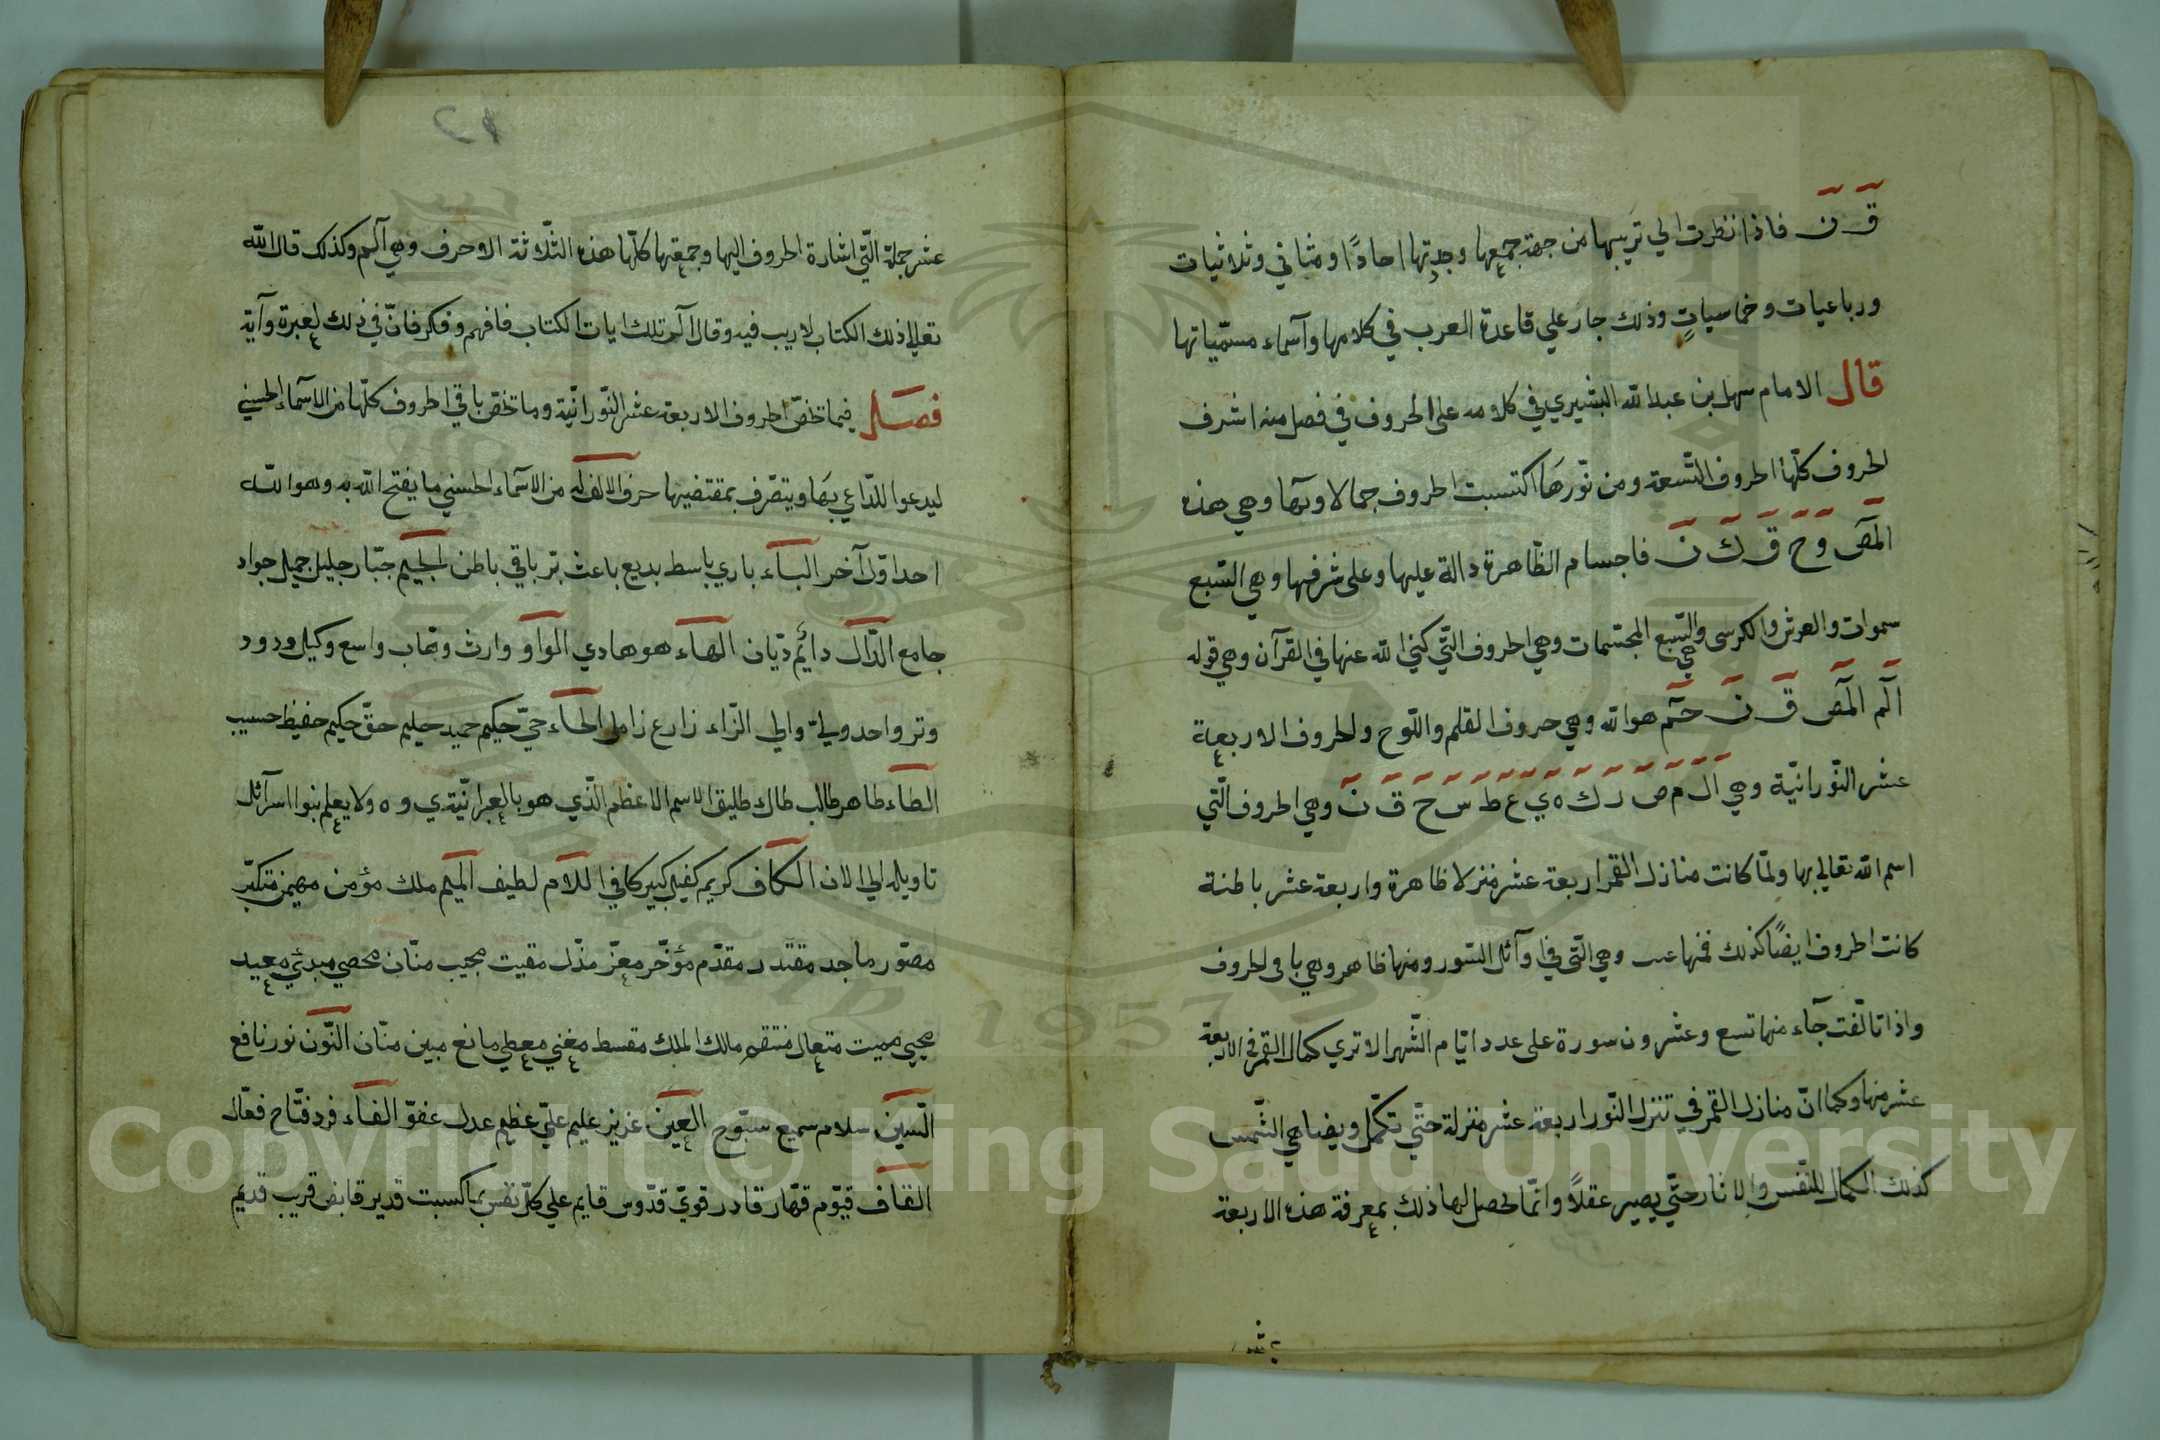 ق ن فاذا نظرت الي تريبها من جهة جمعها وجدتها احادًا ومثاني وثلاثيات
ورباعيات وخماسياتٍ وذلك جار علي قاعدة العرب في كلامها وآسماء مسمّياتها
قال الامام سهل بن عبد الله البشيري في كلامه على الحروف في فصل منه اشرف
الحروف كلّها الحروف التّسعة ومن نّورها اكتسبت الحروف جمالا وبها وهي هذه
المص و ح ق ك ن فاجسام الظّاهرة دالة عليها وعلى شرفها وهي السّبع
سموات والعرش والكرسى والسّبع المجسّمات وهي الحروف التّي كني الله عنها في القرآن وهي قوله
هي
الم المص ق ن حم هو الله وهي حروف القلم واللّوح والحروف الاربعة
عشر النّورانيّة وهي ال م ص ر ك ه ي ع ط س ح ق ن وهي الحروف التّي
اسم الله تعالي بها ولمّا كانت منازل القمر اربعة عشر منزلا ظاهرة واربعة عشر باطنة
كانت الحروف ايضًا كذلك فمنها وهي التّي في اوآئل السّور ومنها ظاهر وهي باقي الحروف
واذا تالّفت جآء منها تسع وعشرون سورة على عدد ايّام الشّهر الا تري كمال القمر في الاربعة
عشر منها وكما انّ منازل القمر في تنزل النّور اربعة عشر منزلة حتّي تكمّل ويضاهي الشّمس
كذلك الكمال للنّفس والاثار حتّي يصير عقلاً وانّما يحصل لها ذلك بمعرفة هذه الاربعة
عشر
عشر جملة التّي اشارة الحروف اليها وجمعتها كلّها هذه الثّلاثة الاحرف وهي الم وكذلك قال الله
تعالي ذلك الكتاب لا ريب فيه وقال الر تلك ايات الكتاب فافهم وفكر فانّ في ذلك لعبرة وآية
فصل فيما تخصّ الحروف الاربعة عشر النّورانيّة وما تخصّ باقي الحروف كلّها من الاسماء الحسني
ليدعوا للدّاعي بها ويتصّرف بمقتضيها حرف الالف له من الاسماء الحسني ما يفتح الله به وهو الله
احد اوّل آخر البآء باري باسط بديع باعث بّر باقي باطن الجيم جبّار جليل جميل جواد
جامع الدّال دائم ديّان الهآء هو هادي الواو وارث وهّاب واسع وكيل ودود
وتر واحد وليّ والي الزّاء زارع زامل الحآء حيّ حكيم حميد حليم حقّ حكيم حفيظ حسيب
الطآء طاهر طالب طاك طليق الاسم الاعظم الّذي هو بالعبرانيّة ي وه ولا يعلم بنوا اسرآئل
تاويله الي الان الكاف كريم كفيل كبير كافي اللام لطيف الميم ملك مؤمن مهيمن متكبّر
مصّور ماجد مقتدر مقدّم مؤخّر معزّ مذّل مقيت مجيب منّان محصي مبدئ معيد
محيي مميت متعال منتقم ملك الملك مقسط مغني معطي مانع مبين منّان النّون نور نافع
السّين سلام سميع سبّوح العين عزيز عليم عليّ عظيم عدل عفوّ الفآء فرد فتّاح فعّال
القاف قيّوم قهّار قادر قويّ قدّوس قايم علي كلّ نفس بما كسبت قدير قابض قريب قديم
Copyright © King Saud University
1957